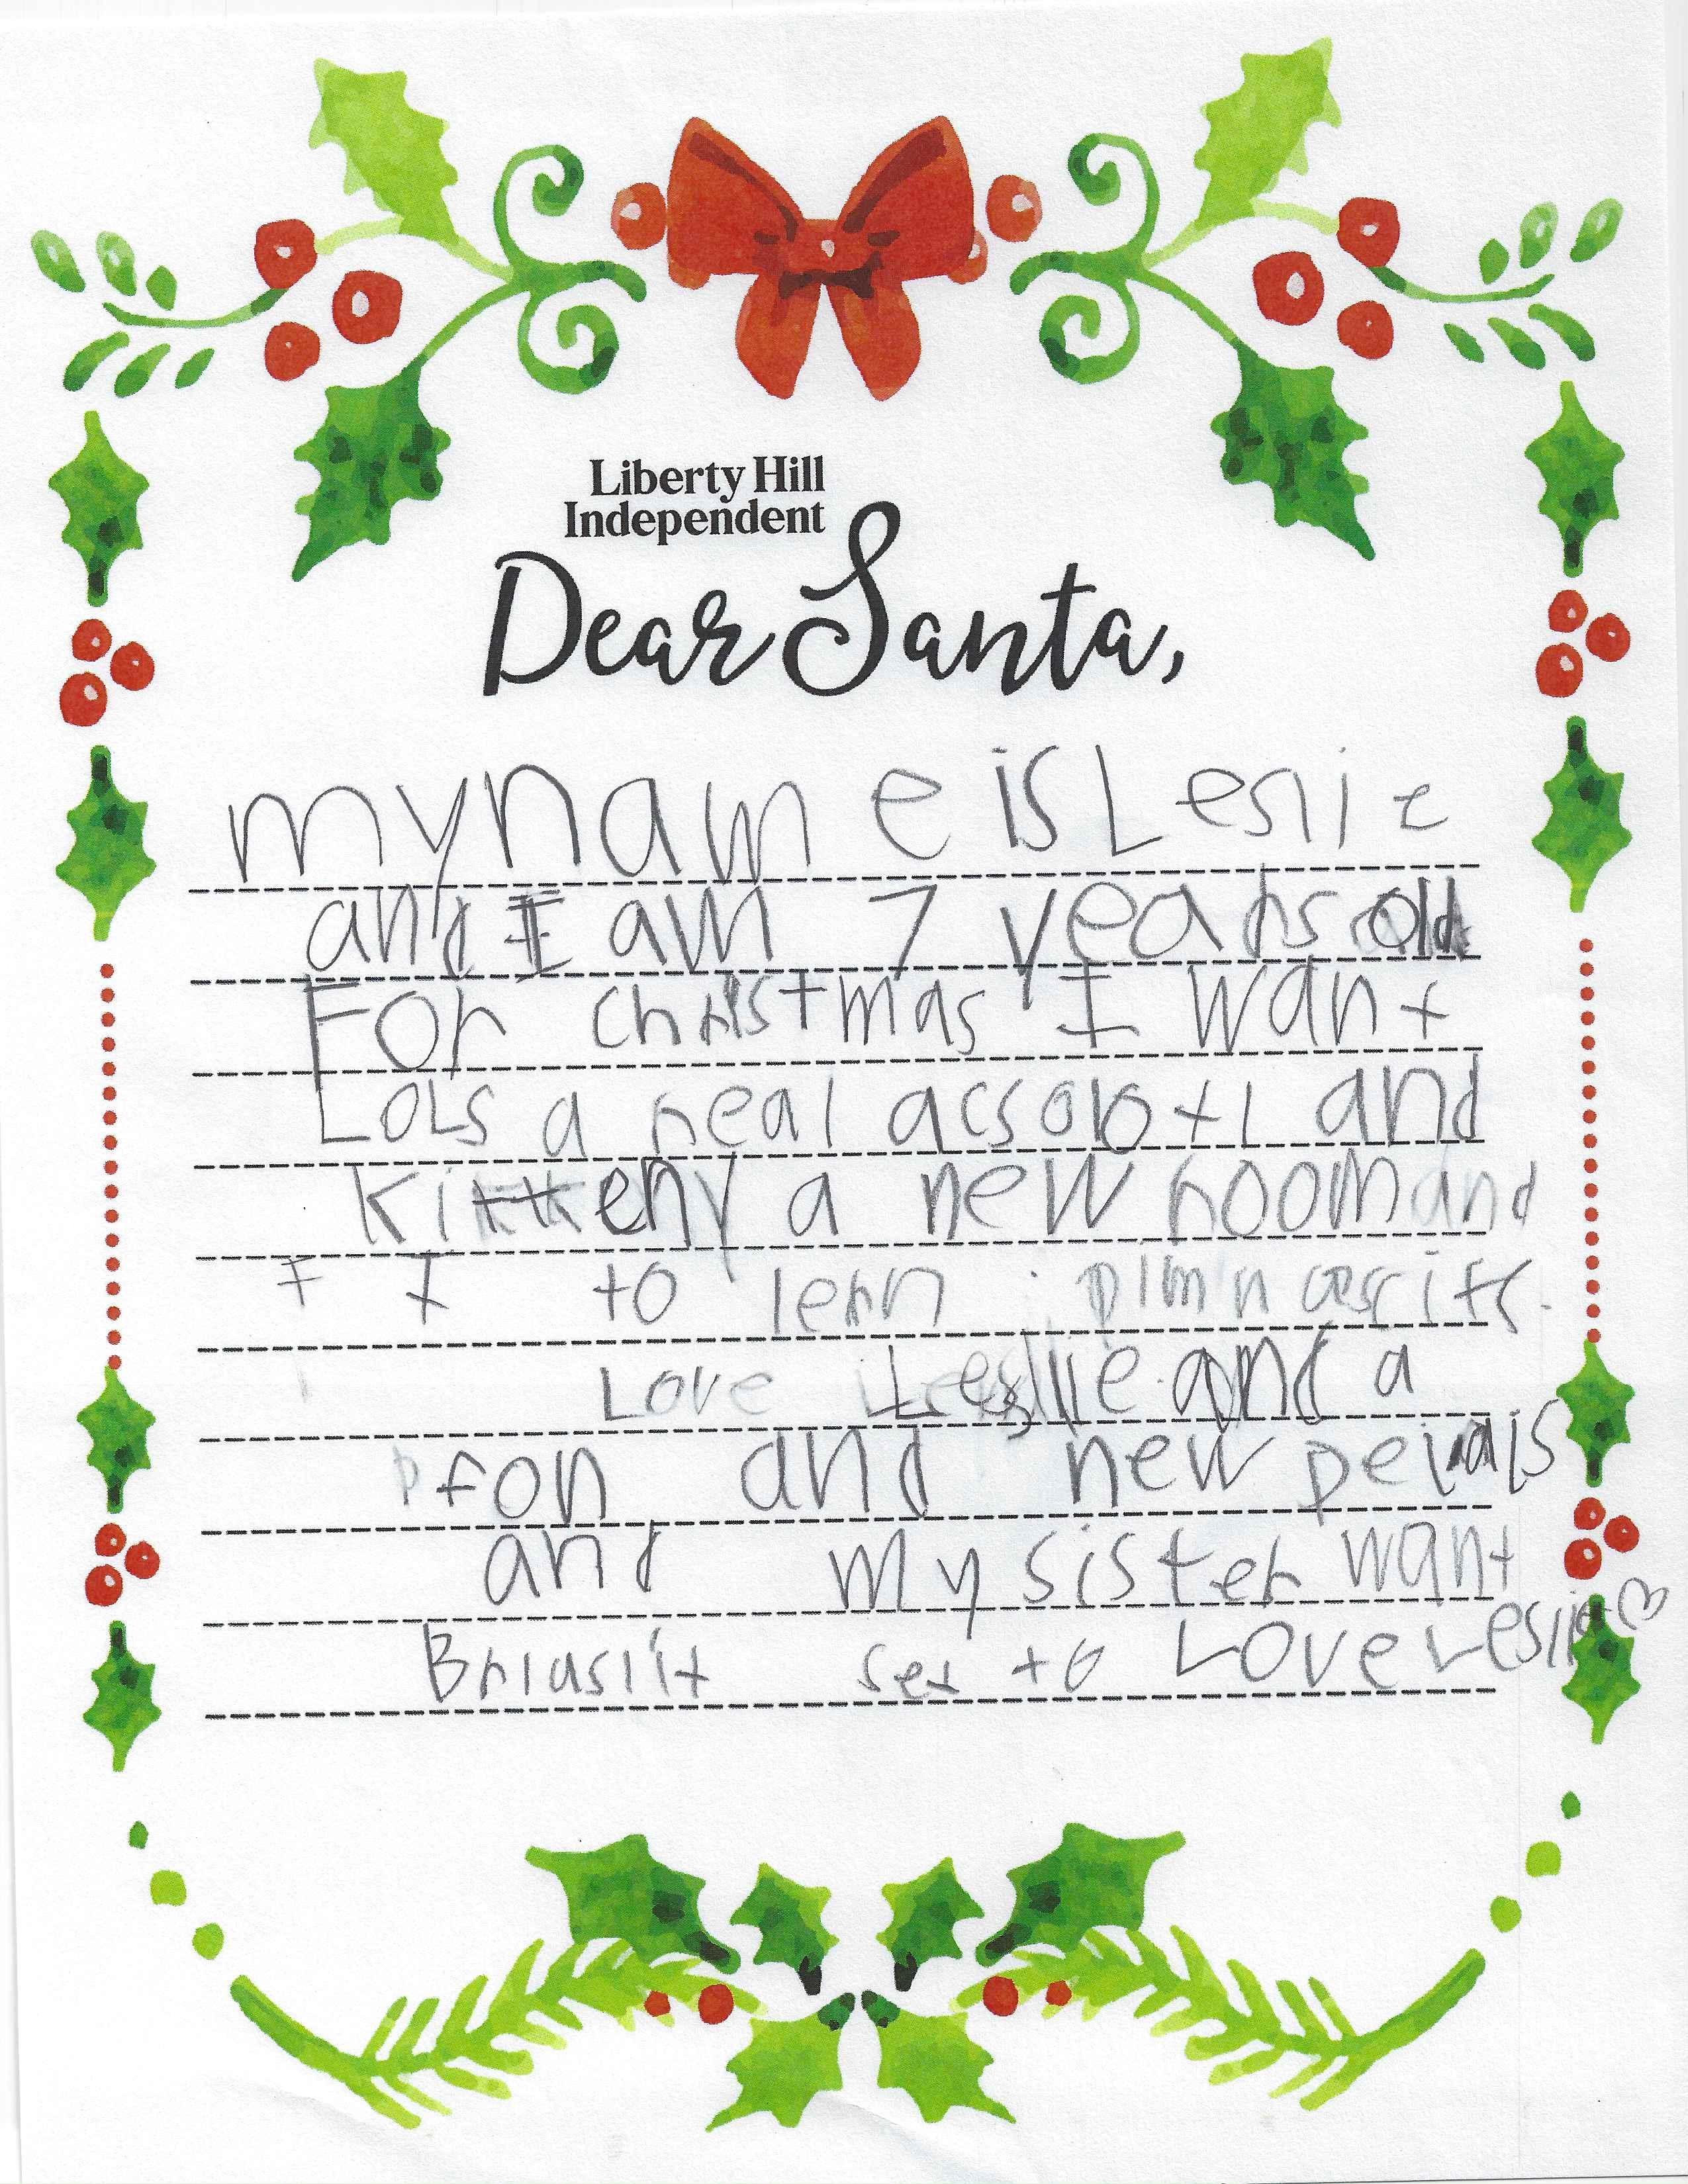 Liberty Hill
Independent
Dear Santa,
my name is Leslie
and I am 7 years old
For christmas I want
LOLS a real acsolotl and
Kitteny a new room and
I I to lern
Love Leslie and a
fon and new
and my sister want
set to Love Leslie